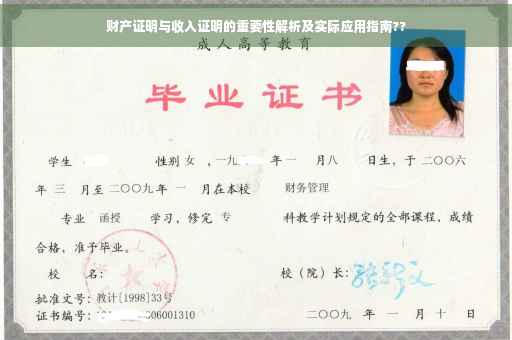 财产证明与收入证明的重要性解析及实际应用指南??
成人高等教育
毕业证书
学生 性别 女 ，一九 年 一 月八 日生，于 二〇〇六
年 三 月至 二〇〇九 年 一 月在本校 财务管理
专业 函授 学习，修完 专 科教学计划规定的全部课程，成绩
合格，准予毕业。
校 名： 校（院）长：
批准文号：教计[1998]33号
证书编号： 06001310 二〇〇九 年 一 月 十 日